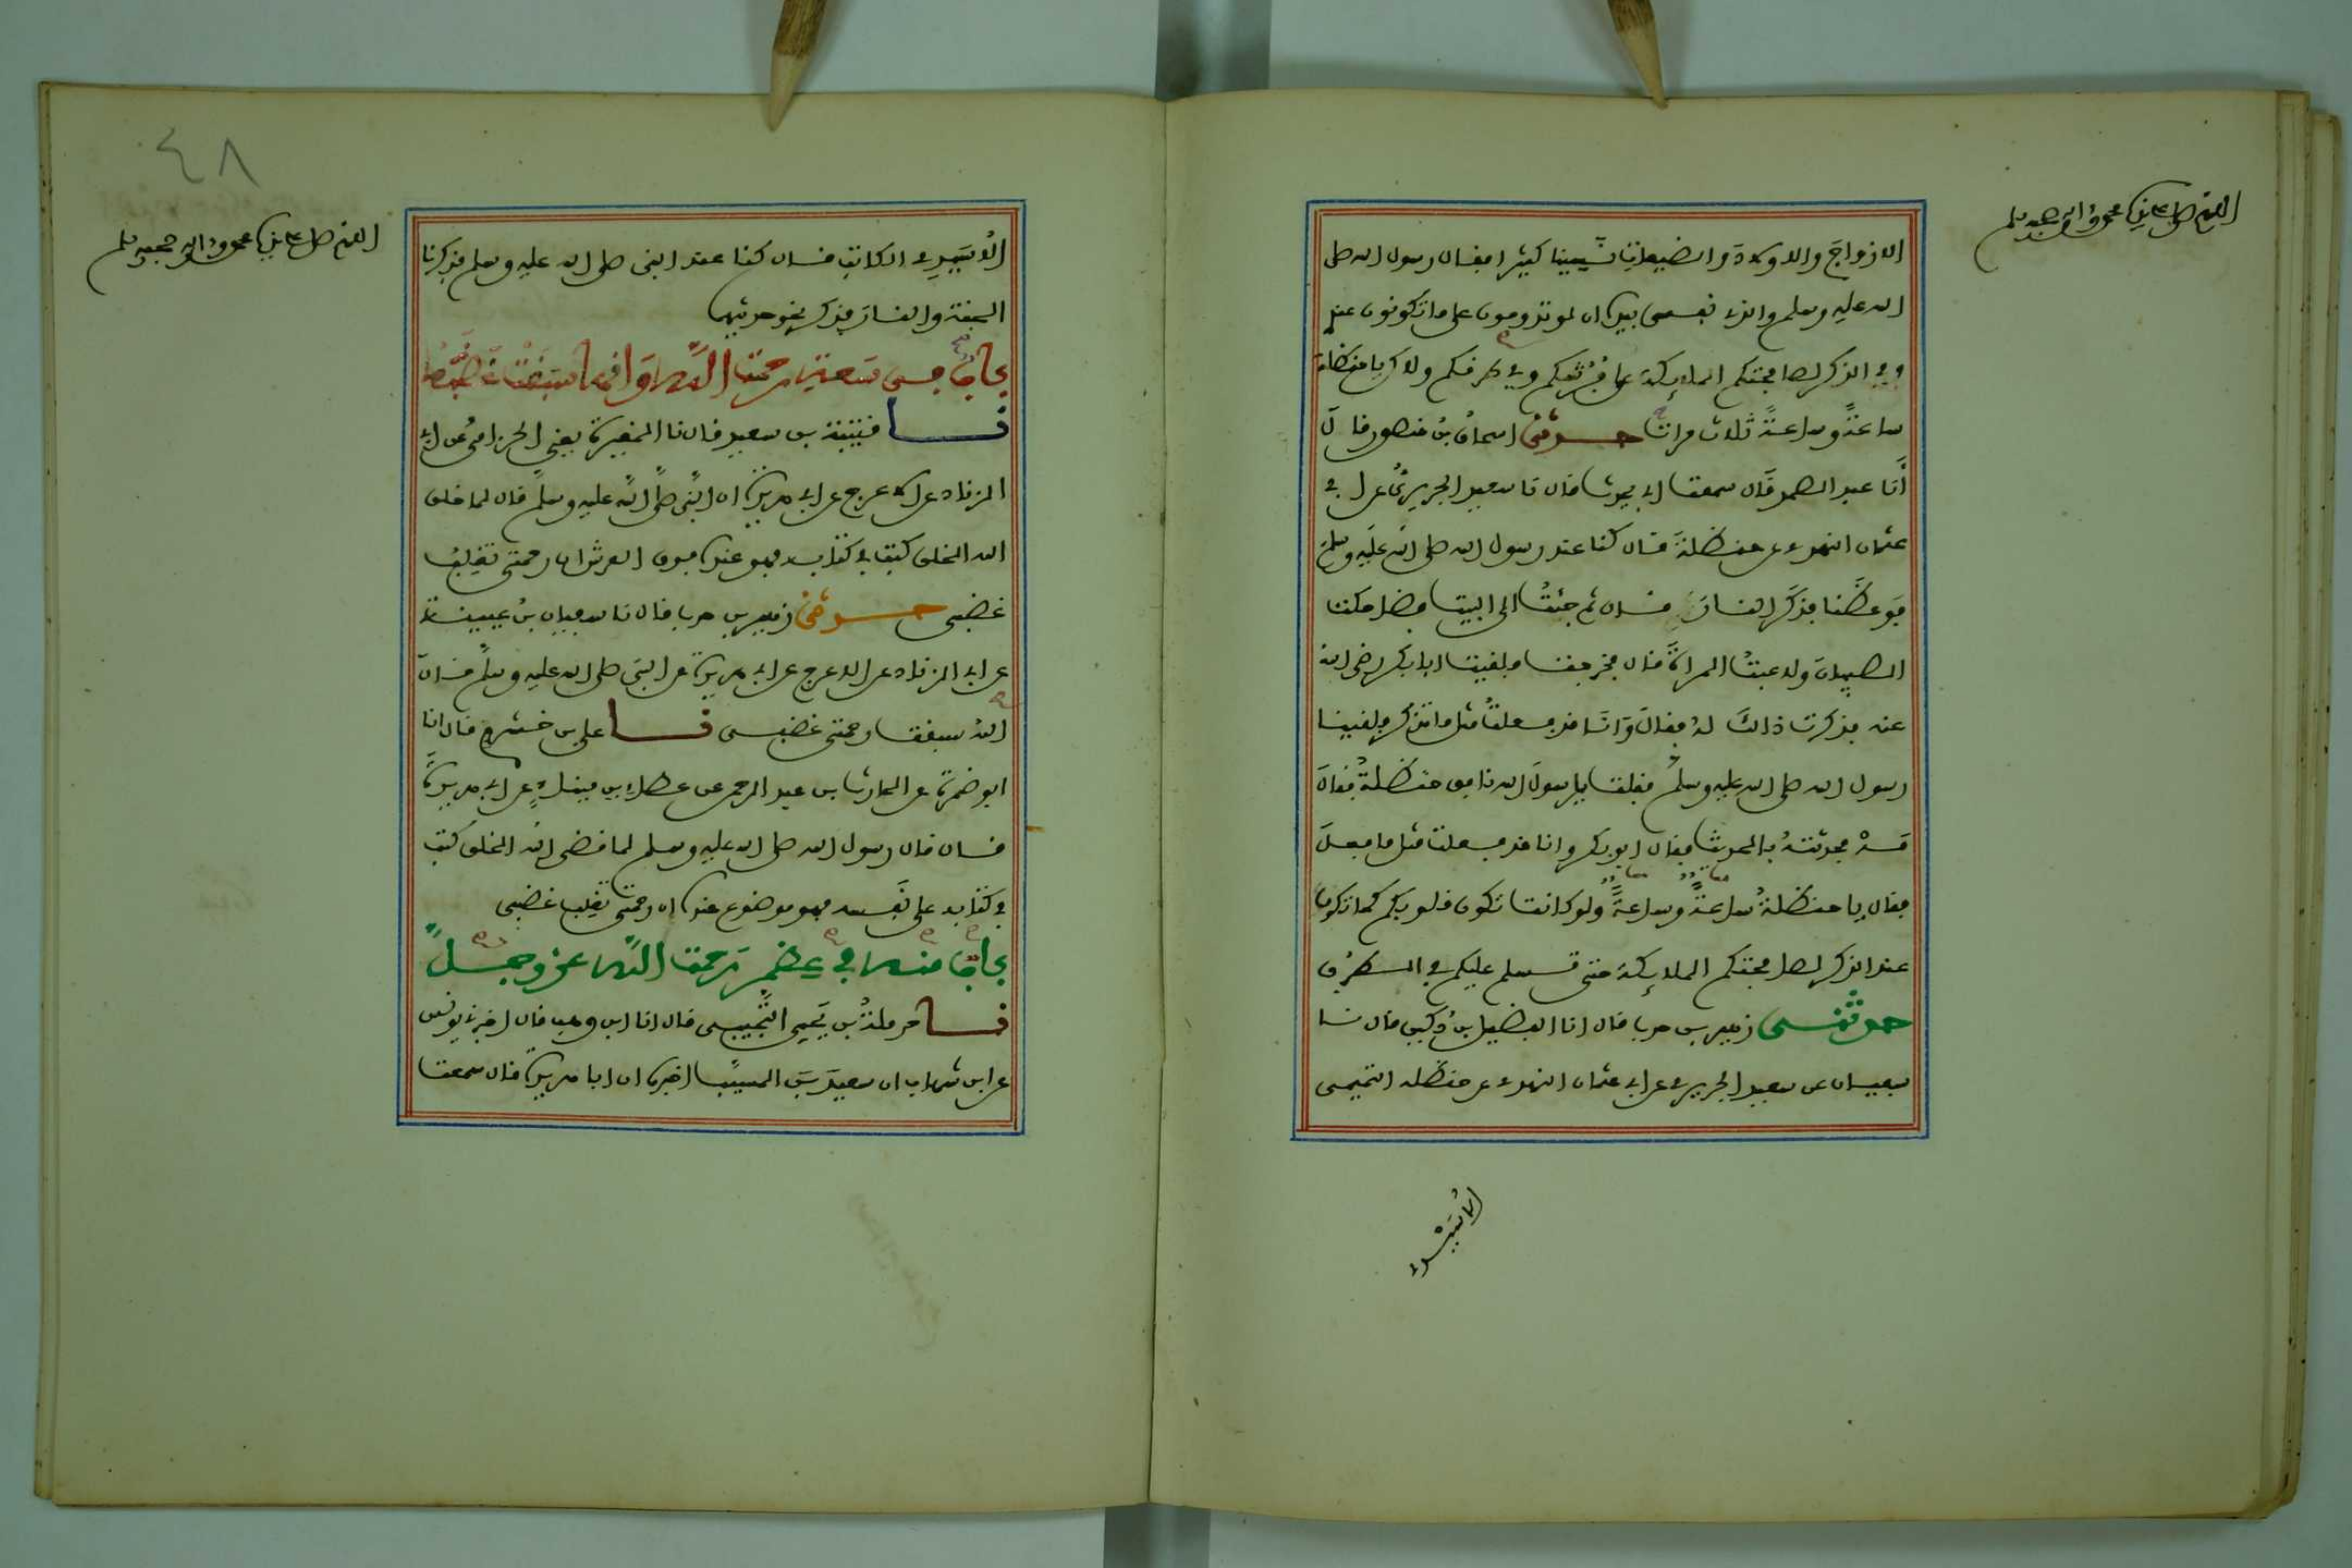 اللهم صل على سيدنا محمد وآله وصحبه وسلم
الازواجَ والاولادَ والضيعاتِ نَسِينا كثيرا فقال رسول الله صلى
الله عليه وسلم والذي نفسي بيده ان لو تدومون على ما تكونون عندي
وفي الذكر لصافحتكم الملائكة على فُرُشكم وفي طرفكم ولاكن يا حنظلة
ساعةً وساعةً ثلاث مرات حدثني اسحاقُ بنُ منصور قال
أنَا عبد الصمد قال سمعت ابي يحدث قال نا سعيد الجريريُّ عن ابي
عثمان النهدي عن حنظلةَ قال كنا عند رسول الله صلى الله عليه وسلم
فوعظَنا فذكَر النارَ قال ثم جئتُ الى البيت فضاحكت
الصبيانَ ولاعبتُ المرأةَ قال فخرجت فلقيت ابا بكر رضي الله
عنه فذكرت ذالك لهُ فقالَ وَأنَا قد فعلتُ مثل ما تذكر فلقينا
رسول الله صلى الله عليه وسلم فقلت يا رسولَ الله نافق حنظلةُ فقالَ
مَهْ فحدثتهُ بالحديث فقال ابو بكر وانا قد فعلت مثل ما فعلَ
فقال يا حنظلةُ ساعةً وساعةً ولو كانت تكون قلوبكم كما تكون
عند الذكر لصافحتكم الملائكة حتى تسلم عليكم في الطرُق
حدثني زهير بن حرب قال انا الفضيل بنُ دكين قال نا
سفيان عن سعيد الجريري عن ابي عثمان النهدي عن حنظلة التميمي
الأُسَيِّدي
٤٨
اللهم صل على سيدنا محمد وآله وصحبه وسلم
الأُسَيِّدي الكاتب قال كنا عند النبي صلى الله عليه وسلم فذكرنا
الجنة والنارَ فذكر نحو حديثهما
بابٌ في سَعة رحمة الله وَانها سبقت غضبَه
نا قتيبة بن سعيد قال نا المغيرة يعني الحزاميُّ عن ابي
الزناد عن الاعرج عن ابي هريرة ان النبي صلى الله عليه وسلم قال لما خلق
الله الخلق كتب في كتابه فهو عنده فوق العرش ان رحمتي تغلِبُ
غضبي حدثني زهير بن حرب قال نا سفيان بنُ عيينة
عن ابي الزناد عن الاعرج عن ابي هريرة عن النبي صلى الله عليه وسلم قال
اللهُ سبقت رحمتي غضبي نا علي بن خشرم قال انا
ابو ضمرة عن الحارث بن عبد الرحمن عن عطاء بن ميناء عن ابي هريرة
قال قال رسول الله صلى الله عليه وسلم لما قضى الله الخلق كتب
في كتابه على نَفسه فهو موضوع عنده ان رحمتي تغلب غضبي
بابٌ منه في عظم رَحمة الله عز وجل
نا حرملةُ بن يَحيى التُّجيبي قال انا ابن وهب قال اخبرني يونس
عن ابن شهاب ان سعيدَ بنَ المسيَّب اخبره ان ابا هريرة قال سمعت